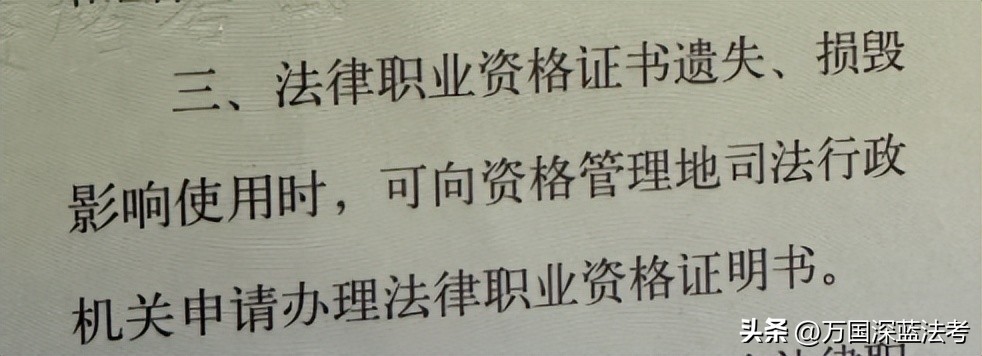 三、法律职业资格证书遗失、损毁
影响使用时，可向资格管理地司法行政
机关申请办理法律职业资格证明书。
头条 @万国深蓝法考